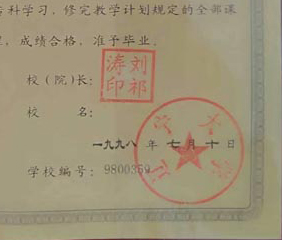 专科学习，修完教学计划规定的全部课
程，成绩合格，准予毕业。
校（院）长：
刘祁涛印
校　　名：
辽宁大学
一九九八 年 七 月 十 日
学校编号：9800359